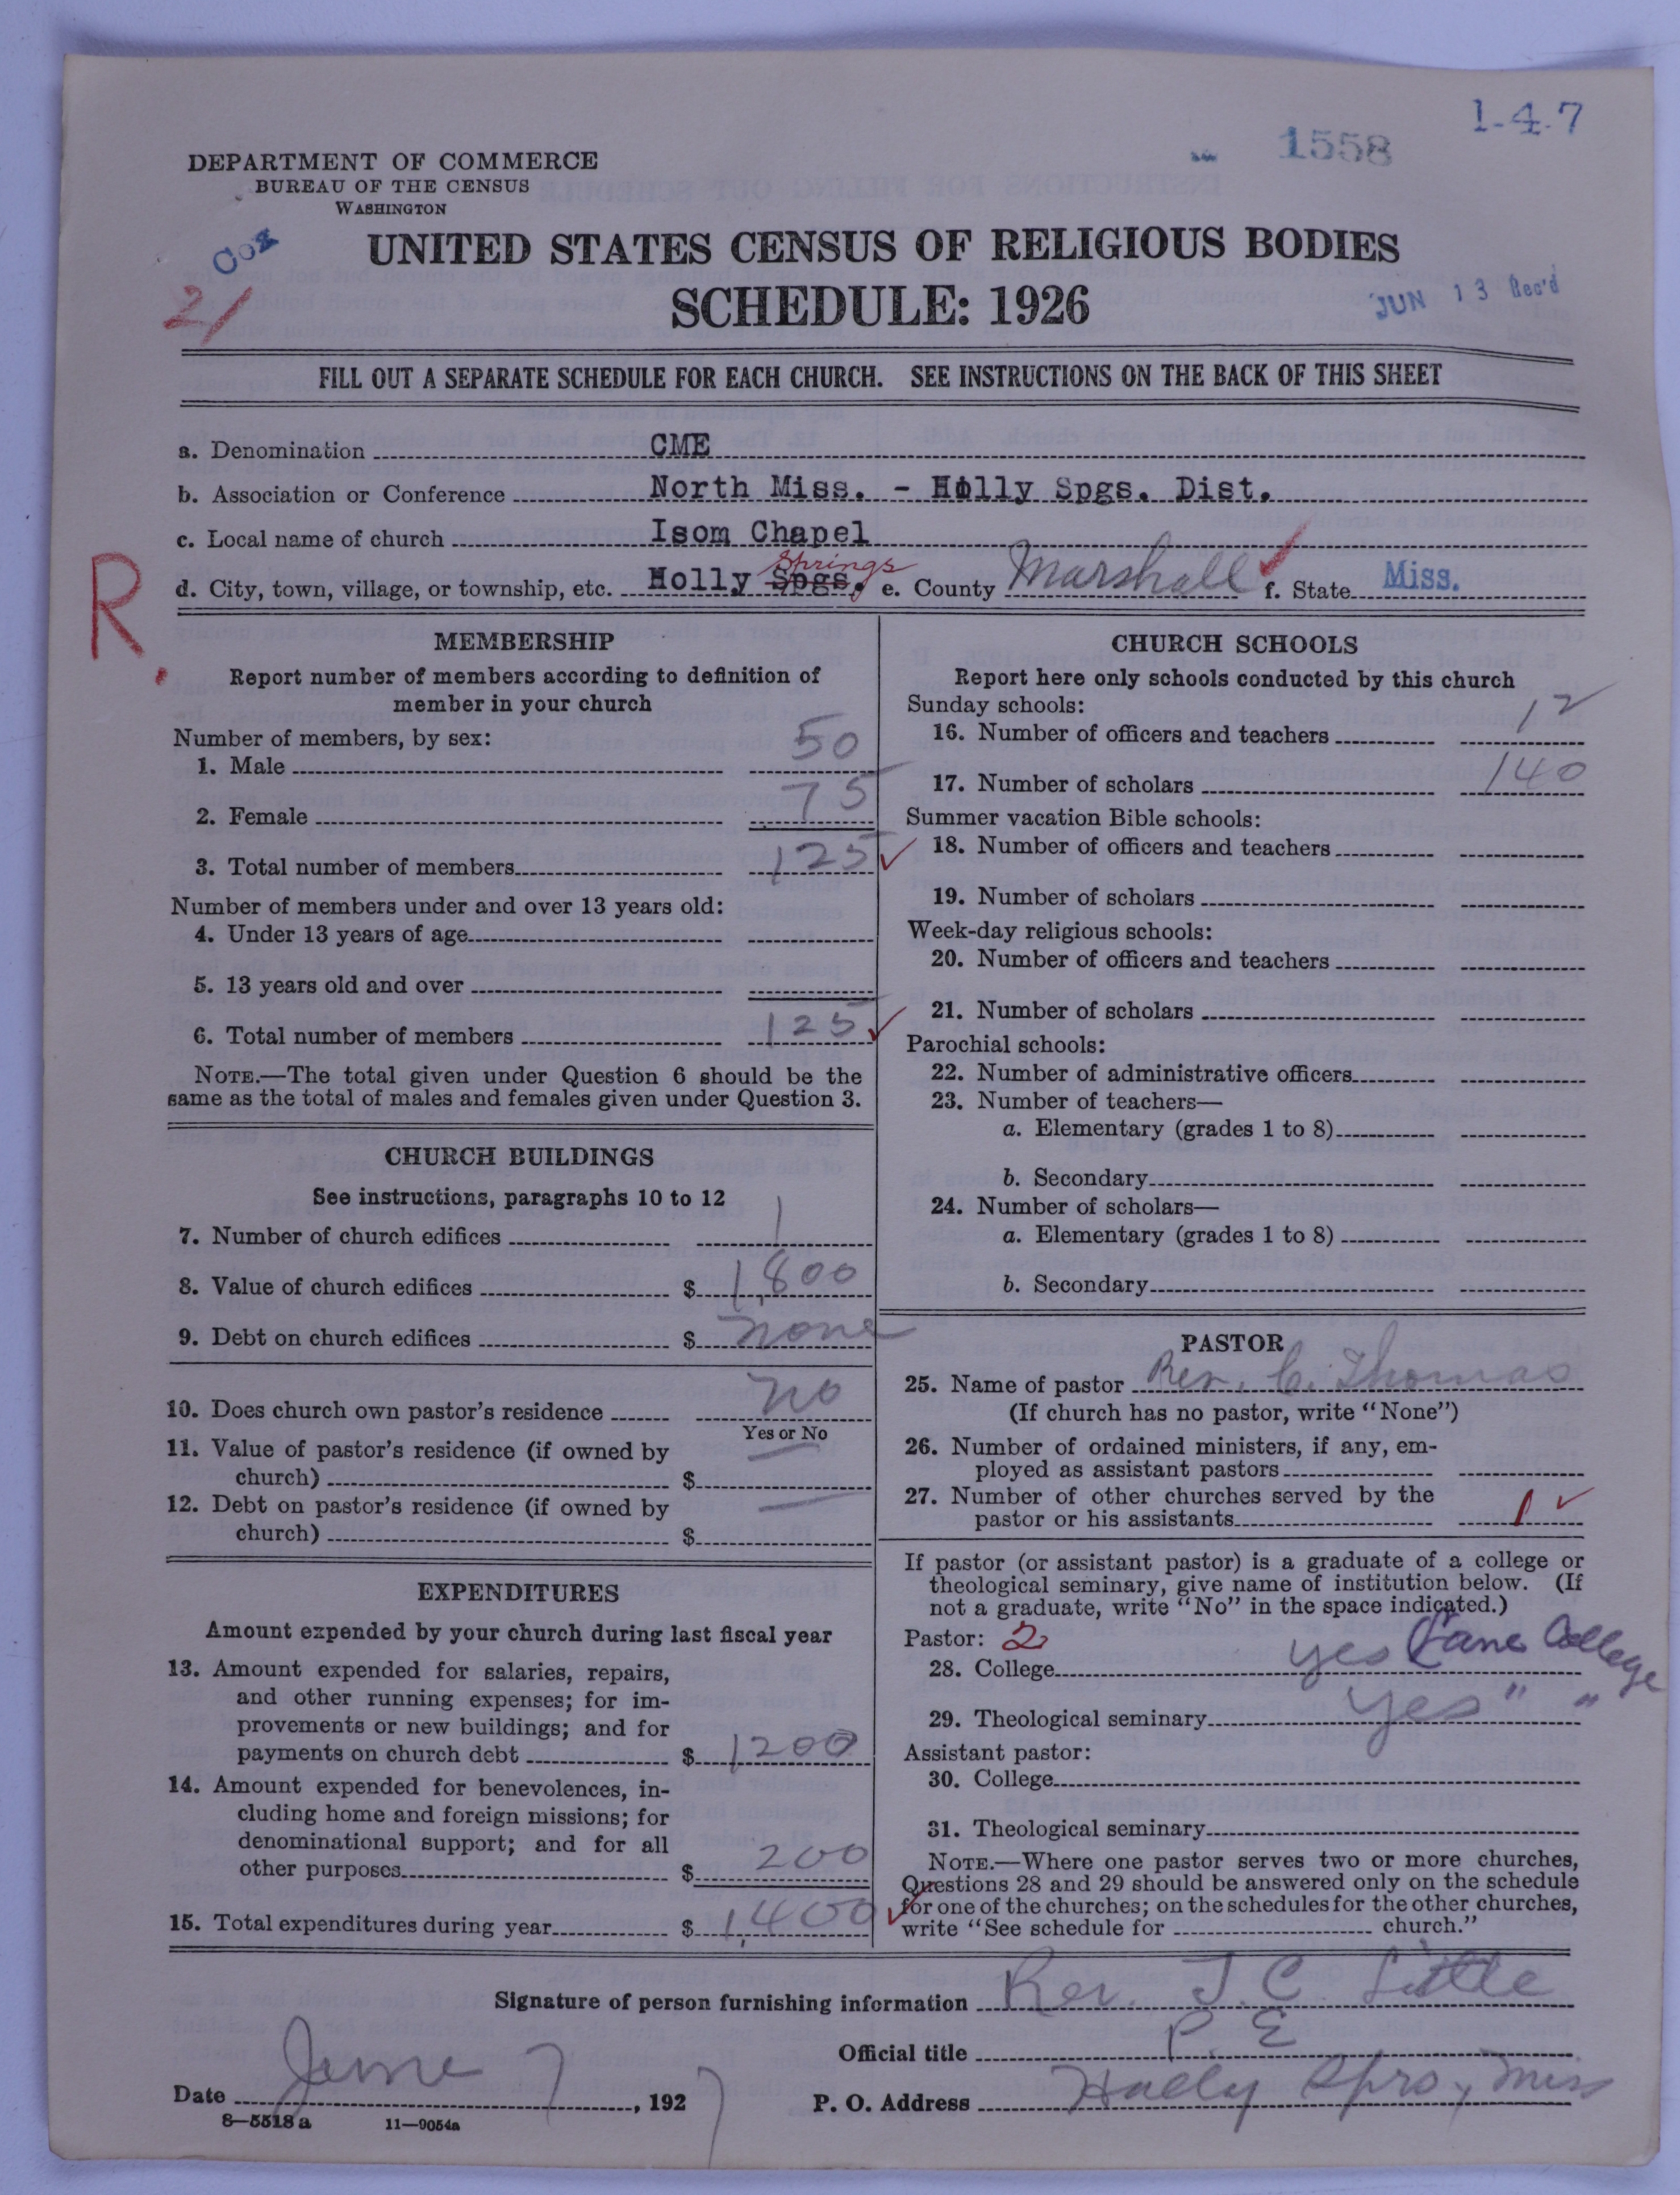 1-4-7
1558
DEPARTMENT OF COMMERCE
BUREAU OF THE CENSUS
WASHINGTON
Cox
21
UNITED STATES CENSUS OF RELIGIOUS BODIES
SCHEDULE: 1926
JUN 13 Rec'd
FILL OUT A SEPARATE SCHEDULE FOR EACH CHURCH. SEE INSTRUCTIONS ON THE BACK OF THIS SHEET
a. Denomination CME
b. Association or Conference North Miss. - Holly Spgs. Dist.
c. Local name of church Isom Chapel
R.
d. City, town, village, or township, etc. Holly Spgs. Springs e. County Marshall f. State Miss.
MEMBERSHIP
Report number of members according to definition of
member in your church
Number of members, by sex:
1. Male 50
2. Female 75
3. Total number of members 125
Number of members under and over 13 years old:
4. Under 13 years of age
5. 13 years old and over
6. Total number of members 125
NOTE.—The total given under Question 6 should be the
same as the total of males and females given under Question 3.
CHURCH BUILDINGS
See instructions, paragraphs 10 to 12
7. Number of church edifices 1
8. Value of church edifices $ 1,800
9. Debt on church edifices $ none
10. Does church own pastor's residence no
Yes or No
11. Value of pastor's residence (if owned by
church) $ —
12. Debt on pastor's residence (if owned by
church) $ —
EXPENDITURES
Amount expended by your church during last fiscal year
13. Amount expended for salaries, repairs,
and other running expenses; for im-
provements or new buildings; and for
payments on church debt $ 1200
14. Amount expended for benevolences, in-
cluding home and foreign missions; for
denominational support; and for all
other purposes $ 200
15. Total expenditures during year $ 1,400
CHURCH SCHOOLS
Report here only schools conducted by this church
Sunday schools:
16. Number of officers and teachers 12
17. Number of scholars 140
Summer vacation Bible schools:
18. Number of officers and teachers
19. Number of scholars
Week-day religious schools:
20. Number of officers and teachers
21. Number of scholars
Parochial schools:
22. Number of administrative officers
23. Number of teachers—
a. Elementary (grades 1 to 8)
b. Secondary
24. Number of scholars—
a. Elementary (grades 1 to 8)
b. Secondary
PASTOR
25. Name of pastor Rev. C. Thomas
(If church has no pastor, write "None")
26. Number of ordained ministers, if any, em-
ployed as assistant pastors
27. Number of other churches served by the
pastor or his assistants 1
If pastor (or assistant pastor) is a graduate of a college or
theological seminary, give name of institution below. (If
not a graduate, write "No" in the space indicated.)
Pastor: 2
28. College yes Lane College
29. Theological seminary yes " "
Assistant pastor:
30. College
31. Theological seminary
NOTE.—Where one pastor serves two or more churches,
Questions 28 and 29 should be answered only on the schedule
for one of the churches; on the schedules for the other churches,
write "See schedule for church."
Signature of person furnishing information Rev. J. C Little
Official title P. E
Date June 7, 1927 P. O. Address Holly Spro, Miss
8—5518 a 11—9054a